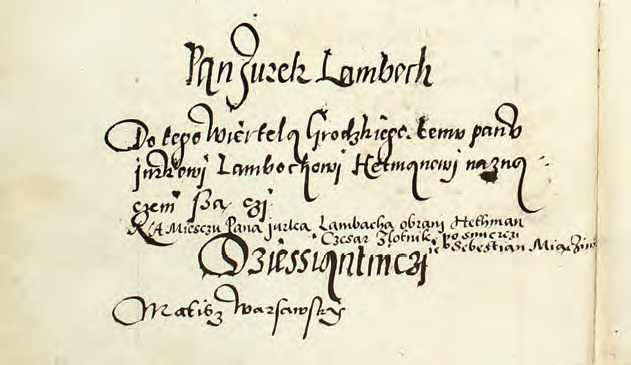 Pan Jurek Lamboch
Do tego Wiertela Grodzkiego. temv panv
jurkowj Lambochowj Hetmanowj nazna
czeni ssą czj
NA Miesczu Pana jurka Lambacha obrani Hethman
Czesar Złotnik, po smierczi
Sebestian
Dziessiąntniczj
Matisz Warsawskj